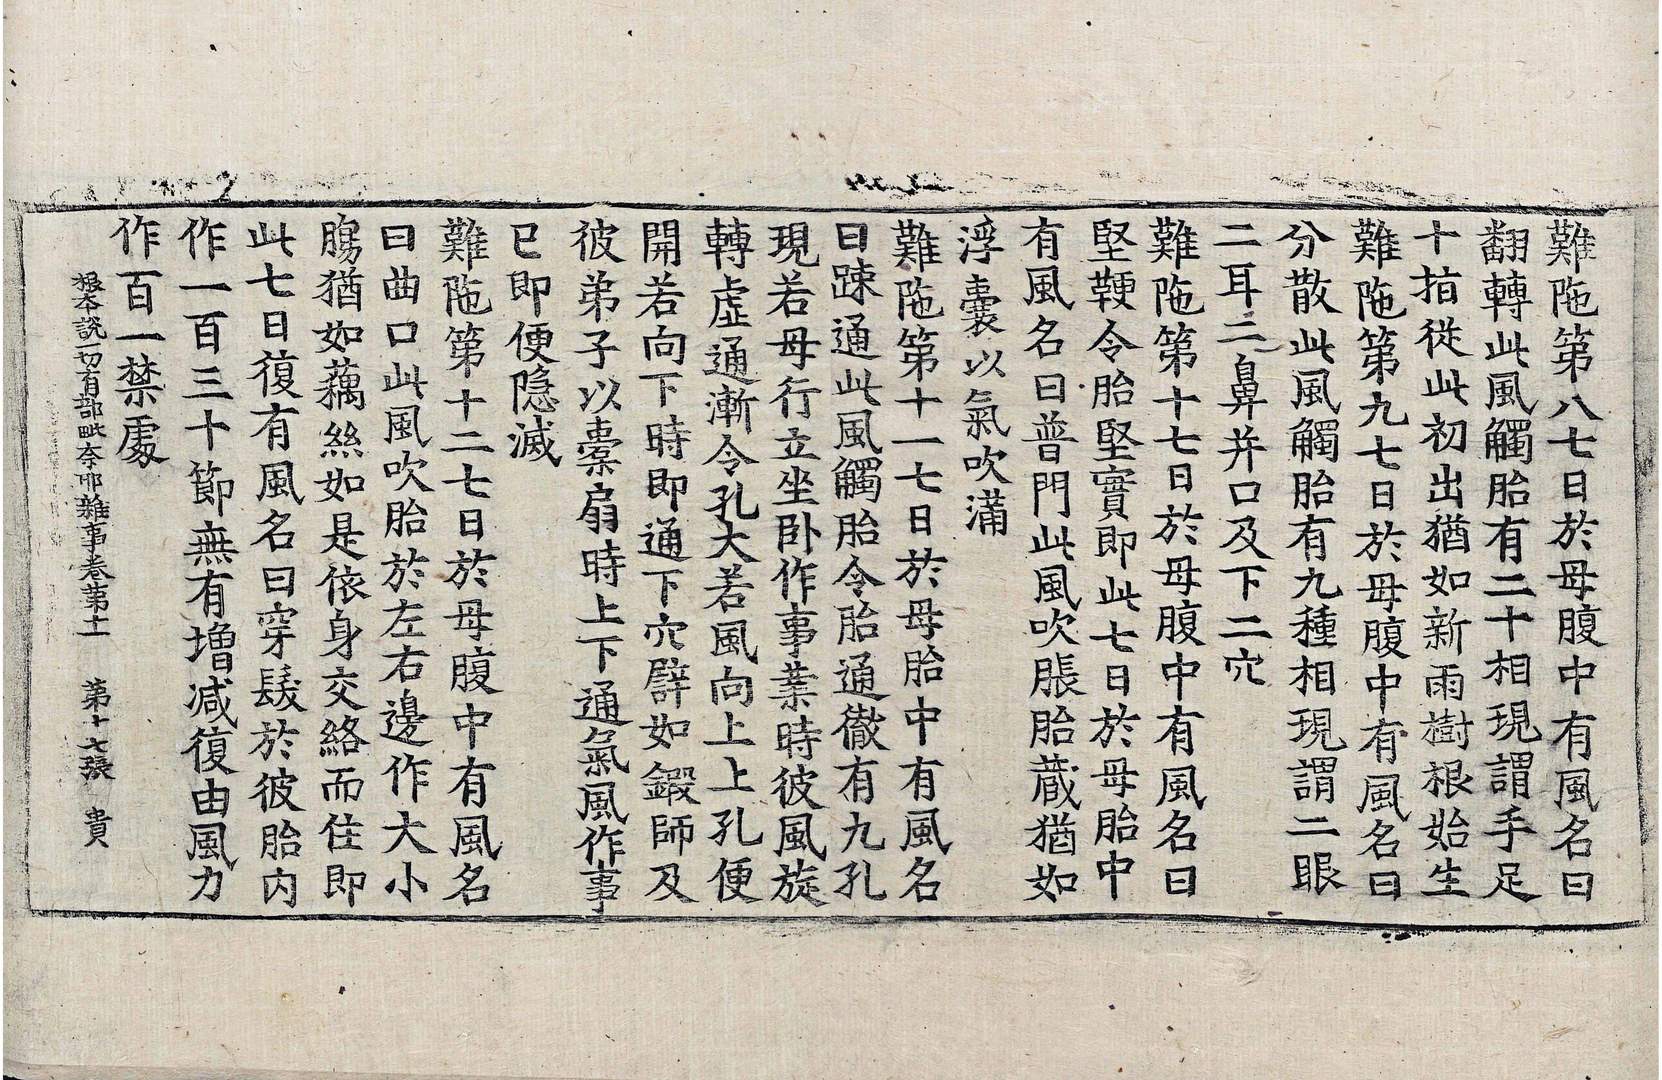 難陁第八七日於母腹中有風名曰
翻轉此風觸胎有二十相現謂手足
十指從此初出猶如新雨樹根始生
難陁第九七日於母腹中有風名曰
分散此風觸胎有九種相現謂二眼
二耳二鼻并口及下二穴
難陁第十七日於母腹中有風名曰
堅鞕令胎堅實即此七日於母胎中
有風名曰普門此風吹脹胎蔵猶如
浮囊以氣吹滿
難陁第十一七日於母胎中有風名
曰踈通此風觸胎令胎通徹有九孔
現若母行立坐卧作事業時彼風旋
轉虛通漸令孔大若風向上上孔便
開若向下時即通下穴譬如鍛師及
彼弟子以橐扇時上下通氣風作事
已即便隱滅
難陁第十二七日於母腹中有風名
曰曲口此風吹胎於左右邊作大小
膓猶如藕絲如是依身交絡而住即
此七日復有風名曰穿髮於彼胎內
作一百三十節無有增減復由風力
作百一禁處
根本說一切有部毗奈耶雜事卷第十一 第十七張 貴